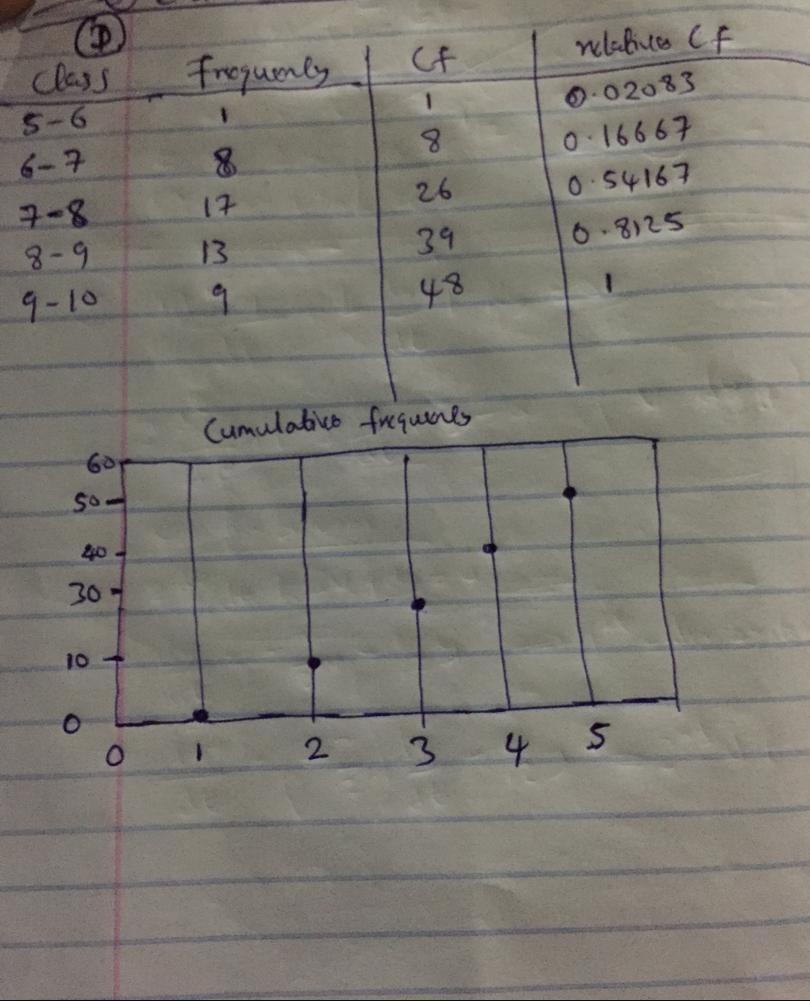 ①
Class Frequency Cf relative Cf
5-6 1 1 0.02083
6-7 8 8 0.16667
7-8 17 26 0.54167
8-9 13 39 0.8125
9-10 9 48 1
Cumulative frequency
60
50
40
30
10
0
0 1 2 3 4 5